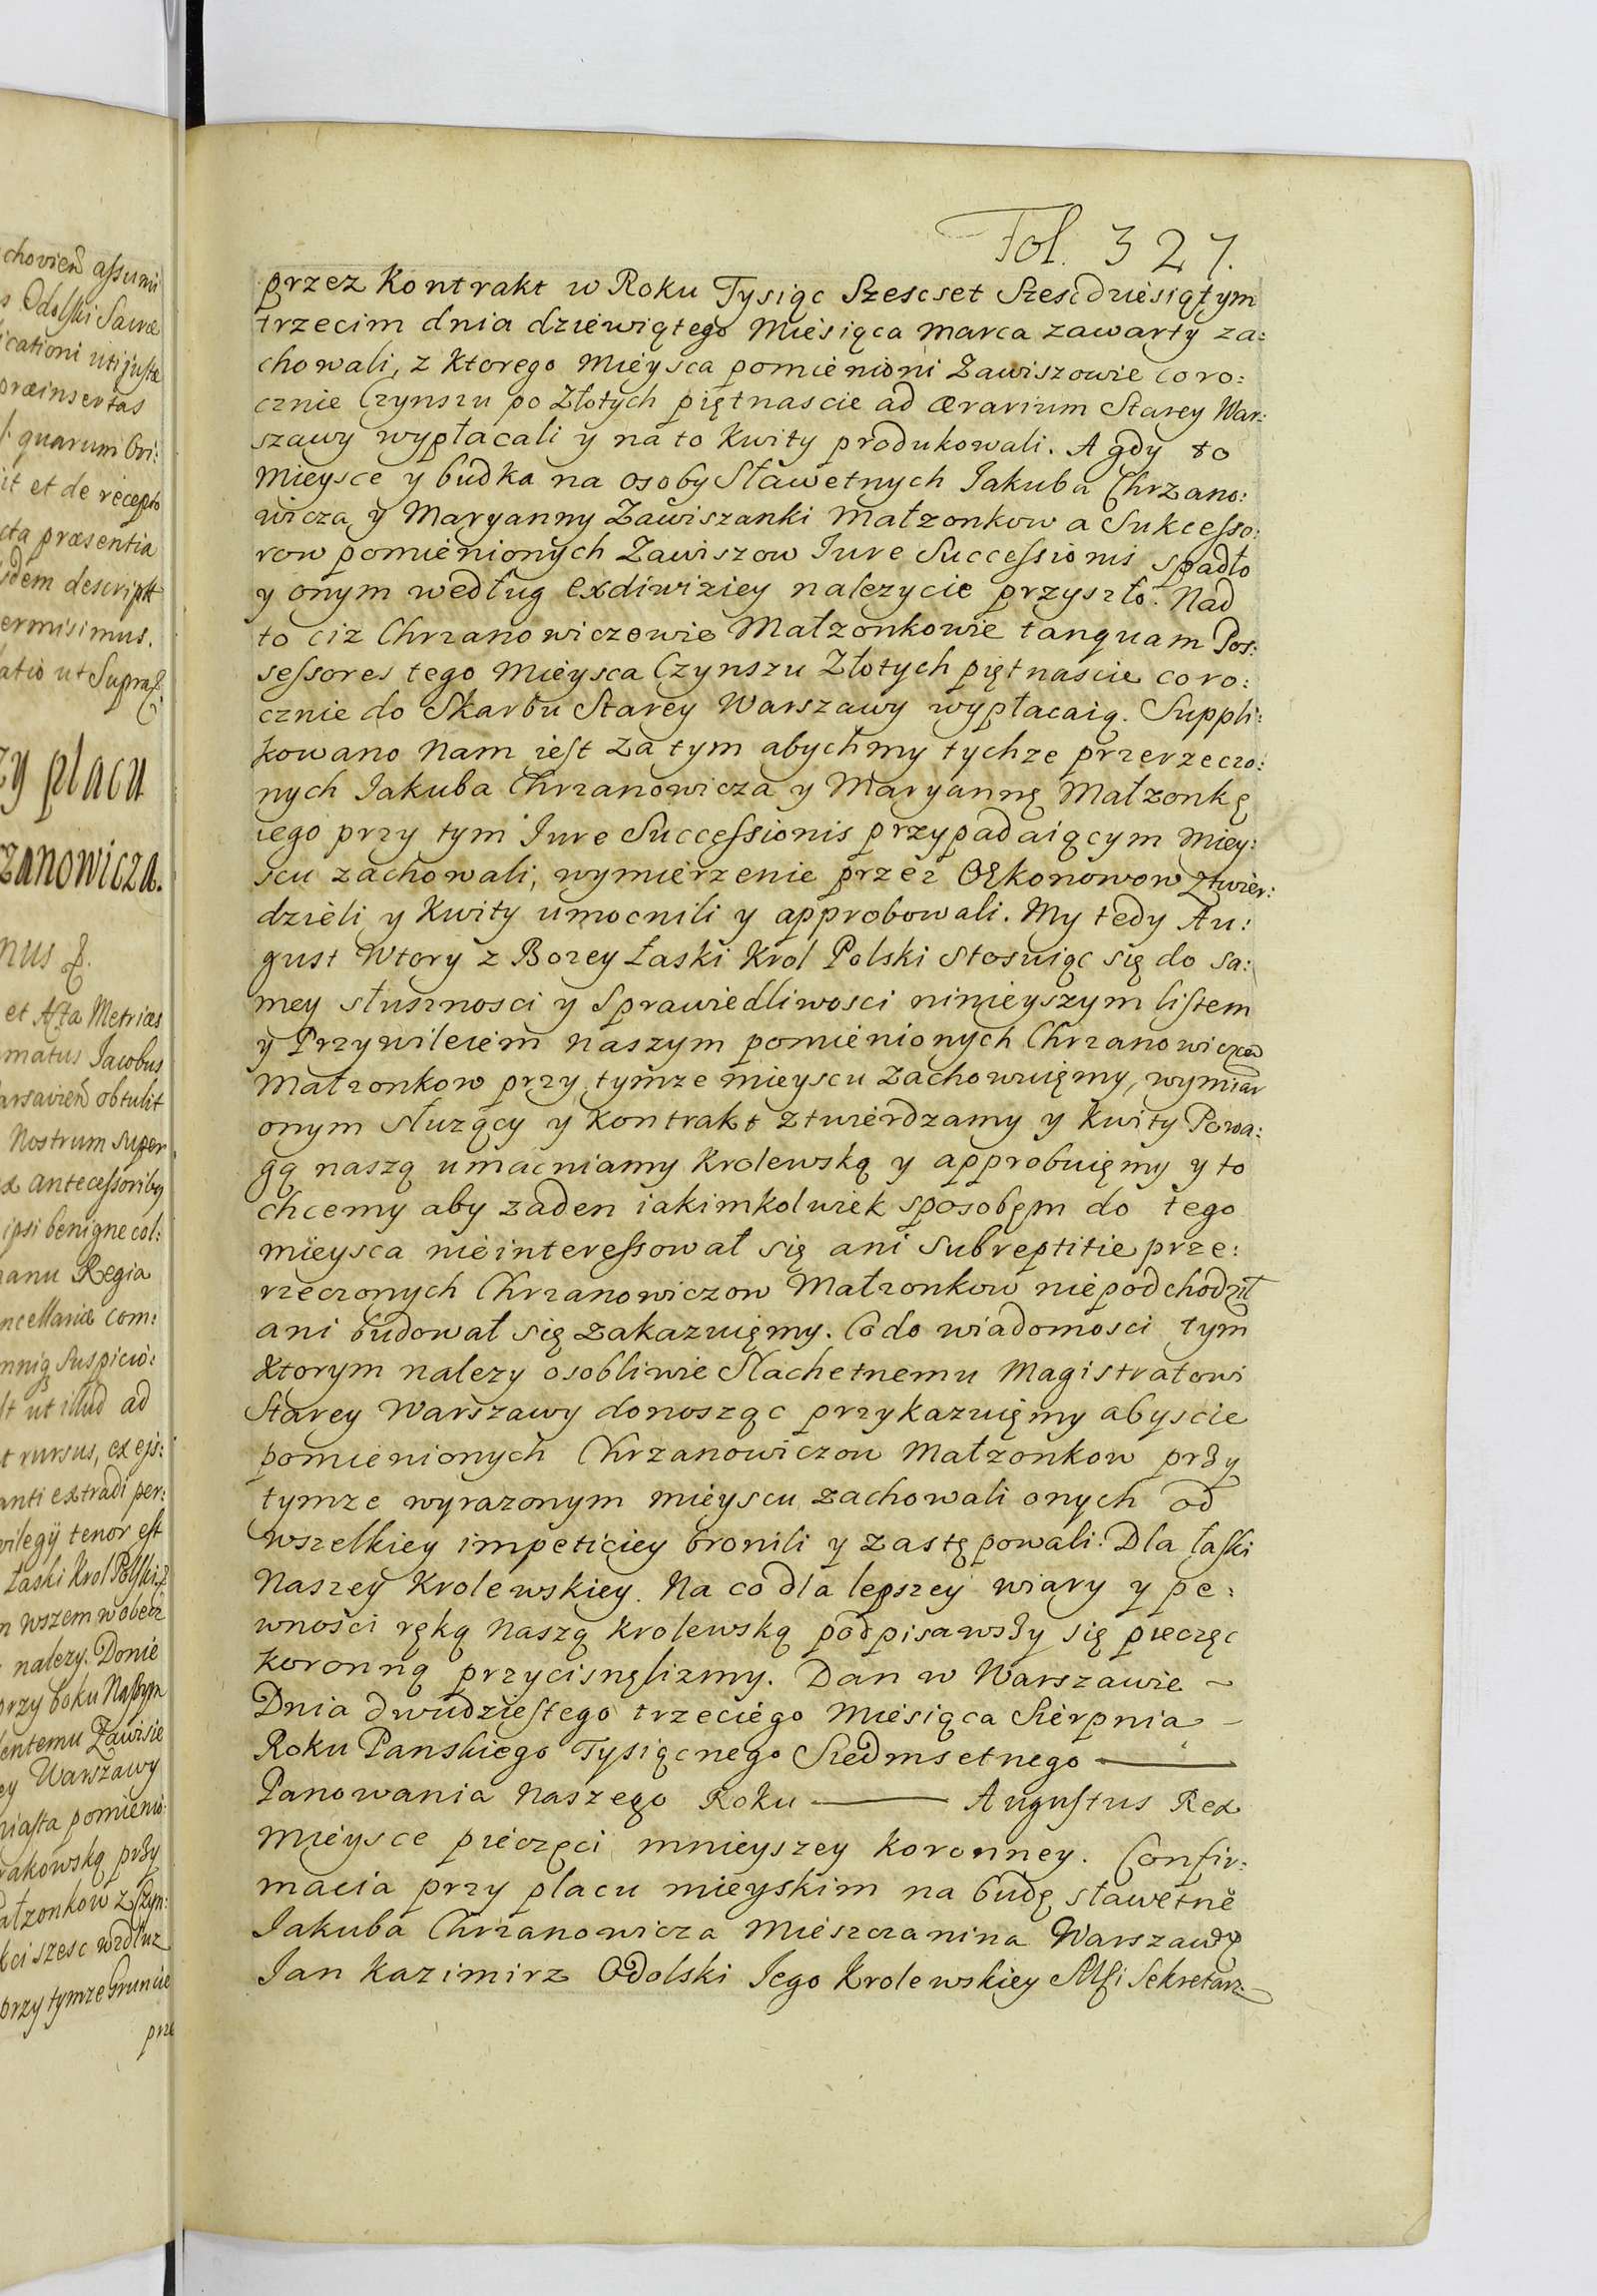 chovień assumi
Odolski Sacræ
icationi uti juste
præinsertas
quarum Ori:
it et de recepto
cta præsentia
dem descriptt
ermisimus.
atio ut Supra
zy placu
zanowicza.
nus
et Acta Metrices
matus Jacobus
arsavień obtulit
Nostrum super
antecessoribq
ipsi benigne col:
anu Regia
ncellariæ com:
Suspicio:
lt ut illud ad
t rursus, ex ejs:
anti extradi per:
vilegij tenor est
Łaski Krol Polski
wszem wobec
nalezy. Donie
przy boku Naszym
lentemu Zawisie
ey Warszawy
miasta pomienio:
rakowską przy
ałzonkow z Czyn:
kci szesc wzdłuz
przy tymze Gruncie
prze
Fol. 327.
przez Kontrakt w Roku Tysiąc Szescset Szescdziesiątym
trzecim dnia dziewiątego Miesiąca Marca zawarty za:
chowali, z ktorego Mieysca pomienioni Zawiszowie coro:
cznie Czynszu po Złotych piętnascie ad ærarium Starey War:
szawy wypłacali y na to Kwity produkowali. A gdy to
Mieysce y budka na osoby Sławetnych Jakuba Chrzano:
wicza y Maryanny Zawiszanki Małzonkow a Sukcesso:
row pomienionych Zawiszow Jure Successionis spadło
y onym według exdiwiziey nalezycie przyszło. Nad
to ciz Chrzanowiczowie Małzonkowie tanquam Pos:
sessores tego Mieysca Czynszu Złotych piętnascie coro:
cznie do Skarbu Starey Warszawy wypłacaią. Suppli:
kowano Nam iest Za tym abychmy tychze przerzeczo:
nych Jakuba Chrzanowicza y Maryannę Małzonkę
iego przy tym Jure Successionis przypadaiącym Miey:
scu zachowali, wymierzenie przez Oekonomow ztwier:
dzieli y Kwity umocnili y approbowali. My tedy Au:
gust Wtory z Bozey Łaski Krol Polski stosuiąc się do sa:
mey słusznosci y Sprawiedliwosci ninieyszym listem
y Przywileiem naszym pomienionych Chrzanowiczow
Małzonkow przy tymze mieyscu Zachowuięmy, wymiar
onym słuzący y Kontrakt ztwierdzamy y Kwity Powa:
gą naszą umacniamy Krolewską y approbuięmy y to
chcemy aby zaden iakimkolwiek sposobem do tego
mieysca nieinteressował się ani subreptitie prze:
rzeczonych Chrzanowiczow Małzonkow niepodchodził
ani budował się zakazuięmy. Co do wiadomosci tym
ktorym nalezy osobliwie Slachetnemu Magistratowi
Starey Warszawy donosząc przykazuięmy abyscie
pomienionych Chrzanowiczow Małzonkow przy
tymze wyrazonym mieyscu zachowali onych od
wszelkiey impeticiey bronili y zastępowali. Dla łaski
Naszey Krolewskiey. Na co dla lepszey wiary y pe:
wności ręką Naszą Krolewską podpisawszy się pieczęc
Koronną przycisnęlizmy. Dan w Warszawie ~
Dnia dwudziestego trzeciego Miesiąca Sierpnia –
Roku Panskiego Tysiącnego Siedmsetnego ——
Panowania Naszego Roku —— Augustus Rex
Mieysce pieczęci mnieyszey koronney. Confir:
macia przy placu mieyskim na budę sławetne
Jakuba Chrzanowicza Mieszczanina Warszaw
Jan Kazimirz Odolski Jego Krolewskiey Msci Sekretarz